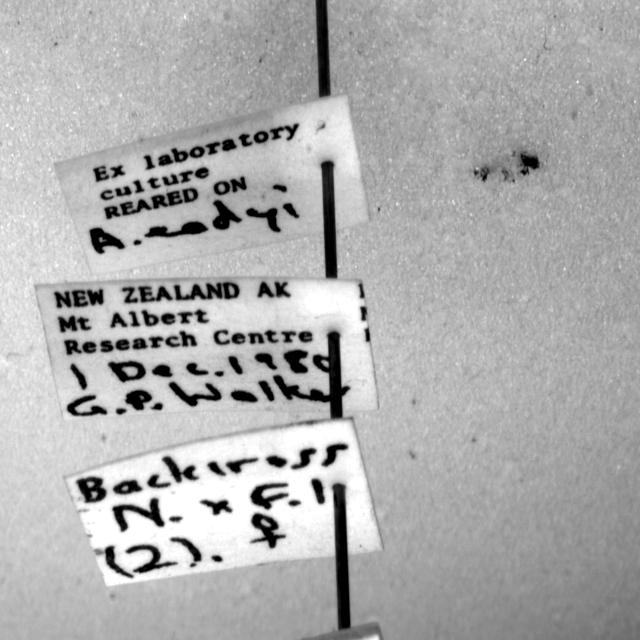 Ex laboratory
culture
REARED ON
NEW ZEALAND AK
Mt Albert
Research Centre
1 Dec. 1980
G.P. Walker
Backcross
N. x F.1
(2). ♀